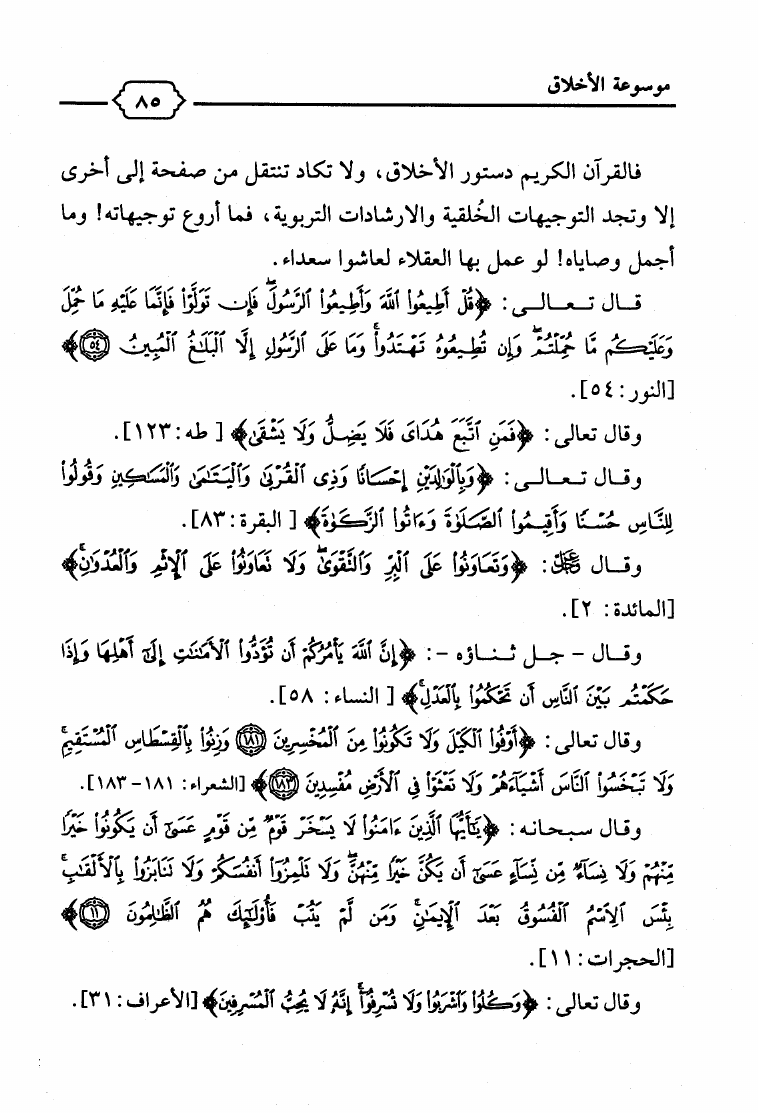 موسوعة الأخلاق
٨٥
فالقرآن الكريم دستور الأخلاق، ولا تكاد تنتقل من صفحة إلى أخرى
إلا وتجد التوجيهات الخُلقية والارشادات التربوية، فما أروع توجيهاته! وما
أجمل وصاياه! لو عمل بها العقلاء لعاشوا سعداء.
قـــال تـــعـــالـــى: ﴿قُلْ أَطِيعُوا۟ ٱللَّهَ وَأَطِيعُوا۟ ٱلرَّسُولَ ۖ فَإِن تَوَلَّوْا۟ فَإِنَّمَا عَلَيْهِ مَا حُمِّلَ
وَعَلَيْكُم مَّا حُمِّلْتُمْ ۖ وَإِن تُطِيعُوهُ تَهْتَدُوا۟ ۚ وَمَا عَلَى ٱلرَّسُولِ إِلَّا ٱلْبَلَـٰغُ ٱلْمُبِينُ ٥٤﴾
[النور: ٥٤].
وقال تعالى: ﴿فَمَنِ ٱتَّبَعَ هُدَاىَ فَلَا يَضِلُّ وَلَا يَشْقَىٰ﴾ [ طه: ١٢٣].
وقـــال تـــعـــالـــى: ﴿وَبِٱلْوَٰلِدَيْنِ إِحْسَانًا وَذِى ٱلْقُرْبَىٰ وَٱلْيَتَـٰمَىٰ وَٱلْمَسَـٰكِينِ وَقُولُوا۟
لِلنَّاسِ حُسْنًا وَأَقِيمُوا۟ ٱلصَّلَوٰةَ وَءَاتُوا۟ ٱلزَّكَوٰةَ﴾ [ البقرة: ٨٣].
وقـــال ﷻ: ﴿وَتَعَاوَنُوا۟ عَلَى ٱلْبِرِّ وَٱلتَّقْوَىٰ ۖ وَلَا تَعَاوَنُوا۟ عَلَى ٱلْإِثْمِ وَٱلْعُدْوَٰنِ ۚ﴾
[المائدة: ٢].
وقـــال - جـــل ثـــنـــاؤه -: ﴿إِنَّ ٱللَّهَ يَأْمُرُكُمْ أَن تُؤَدُّوا۟ ٱلْأَمَـٰنَـٰتِ إِلَىٰٓ أَهْلِهَا وَإِذَا
حَكَمْتُم بَيْنَ ٱلنَّاسِ أَن تَحْكُمُوا۟ بِٱلْعَدْلِ ۚ﴾ [ النساء: ٥٨].
وقال تعالى: ﴿أَوْفُوا۟ ٱلْكَيْلَ وَلَا تَكُونُوا۟ مِنَ ٱلْمُخْسِرِينَ ١٨١ وَزِنُوا۟ بِٱلْقِسْطَاسِ ٱلْمُسْتَقِيمِ ۚ
وَلَا تَبْخَسُوا۟ ٱلنَّاسَ أَشْيَآءَهُمْ وَلَا تَعْثَوْا۟ فِى ٱلْأَرْضِ مُفْسِدِينَ ١٨٣﴾ [الشعراء: ١٨١-١٨٣].
وقال سبحانه: ﴿يَـٰٓأَيُّهَا ٱلَّذِينَ ءَامَنُوا۟ لَا يَسْخَرْ قَوْمٌ مِّن قَوْمٍ عَسَىٰٓ أَن يَكُونُوا۟ خَيْرًا
مِّنْهُمْ وَلَا نِسَآءٌ مِّن نِّسَآءٍ عَسَىٰٓ أَن يَكُنَّ خَيْرًا مِّنْهُنَّ ۖ وَلَا تَلْمِزُوٓا۟ أَنفُسَكُمْ وَلَا تَنَابَزُوا۟ بِٱلْأَلْقَـٰبِ ۖ
بِئْسَ ٱلِٱسْمُ ٱلْفُسُوقُ بَعْدَ ٱلْإِيمَـٰنِ ۚ وَمَن لَّمْ يَتُبْ فَأُو۟لَـٰٓئِكَ هُمُ ٱلظَّـٰلِمُونَ ١١﴾
[الحجرات: ١١].
وقال تعالى: ﴿وَكُلُوا۟ وَٱشْرَبُوا۟ وَلَا تُسْرِفُوٓا۟ ۚ إِنَّهُۥ لَا يُحِبُّ ٱلْمُسْرِفِينَ﴾ [الأعراف: ٣١].